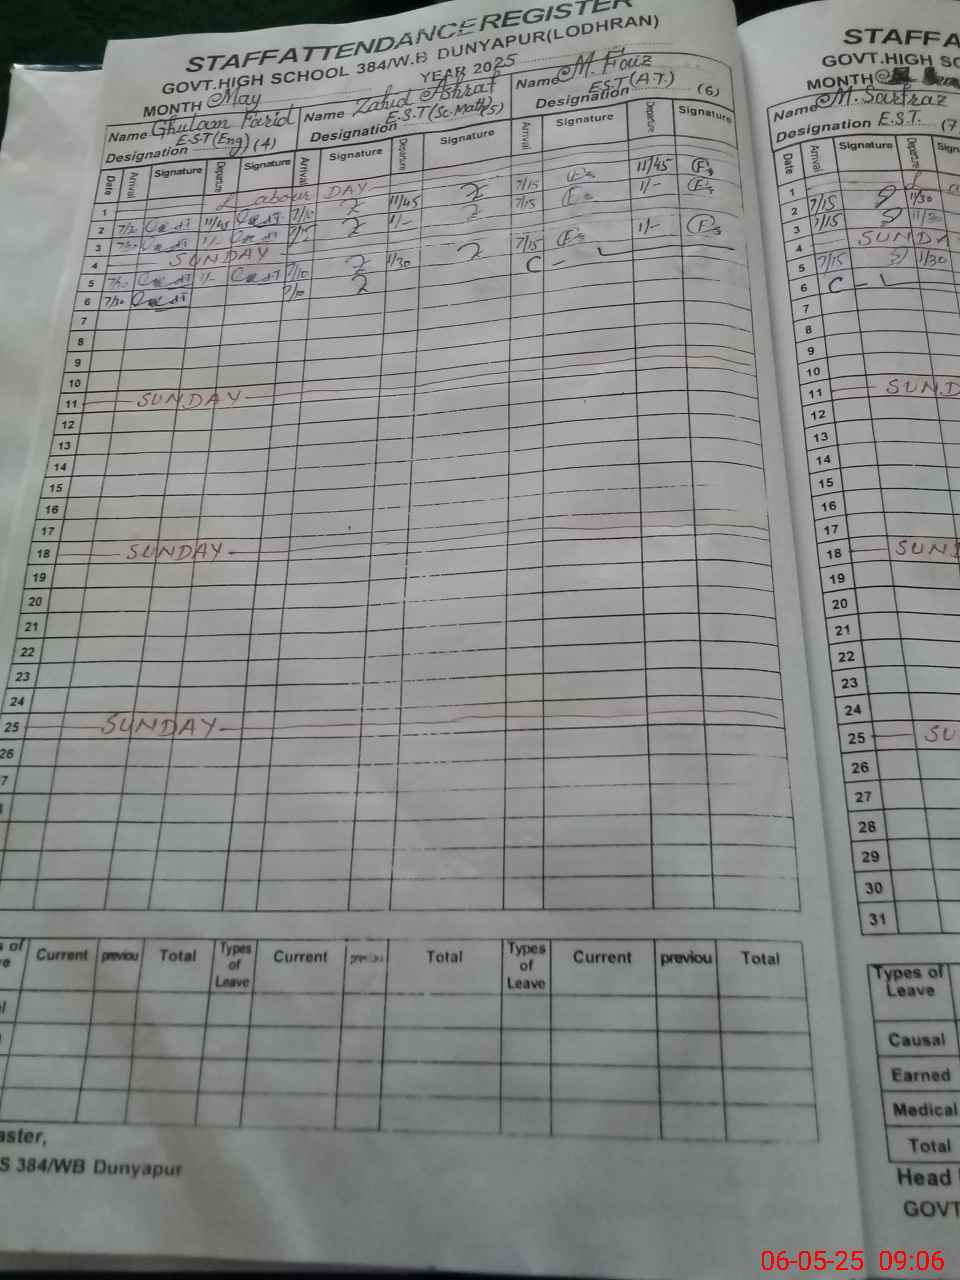 STAFF ATTENDANCE REGISTER
GOVT. HIGH SCHOOL 384/W.B DUNYAPUR(LODHRAN)
MONTH May YEAR 2025
Name Ghulam Farid Name Zahid Ashraf Name M. Fiouz
Designation E.S.T(Eng) (4) Designation E.S.T(Sc.Math)(5) Designation E.S.T(A.T.) (6)
Date Arrival Signature Departure Signature Arrival Signature Departure Signature Arrival Signature Departure Signature
1 Labour DAY
2 11/45 7/15 11/45 7/15 11/45
3 7/30 1/- 7/15 1/- 7/15 1/-
4 SUNDAY
5 7/30 1/- 7/10 1/30 7/15 1/-
6 7/30 7/10 C
7
8
9
10
11 SUNDAY
12
13
14
15
16
17
18 SUNDAY
19
20
21
22
23
24
25 SUNDAY
26
7
s of Current previou Total Types of Leave Current Total Types of Leave Current previou Total
aster,
S 384/WB Dunyapur
STAFFA
GOVT. HIGH SC
MONTH
Name M. Sarfraz
Designation E.S.T. (7
Date Arrival Signature Departure Sign
1
2 7/15 11/30
3 7/15 11/30
4 SUNDA
5 7/15 11/30
6 C
7
8
9
10
11 SUND
12
13
14
15
16
17
18 SUND
19
20
21
22
23
24
25 SU
26
27
28
29
30
31
Types of Leave
Causal
Earned
Medical
Total
Head
GOVT
06-05-25 09:06